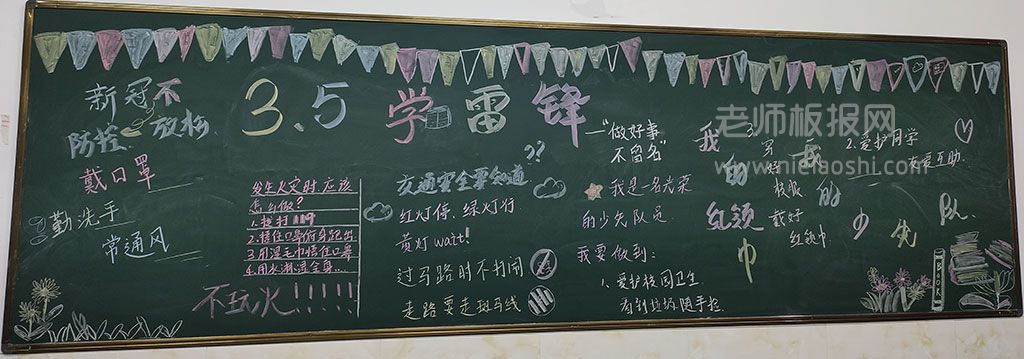 新冠不
防控 放松
戴口罩
勤洗手
常通风
3.5
学雷锋
—"做好事
不留名"
发生火灾时应该
怎么做？
1.拨打119
2.捂住口鼻俯身跑出
3.用湿毛巾捂住口鼻
4.用水淋湿全身...
不玩火!!!!!!
交通安全要知道
??
红灯停、绿灯行
黄灯wait!
过马路时不打闹
走路要走斑马线
我是一名光荣
的少先队员
我要做到：
1、爱护校园卫生
看到垃圾随手捡
我的
红领
巾
3.
戴好
红领巾
我的
少先队.
2.爱护同学
友爱互助.
BOOK
老师板报网
www.nielaoshi.com